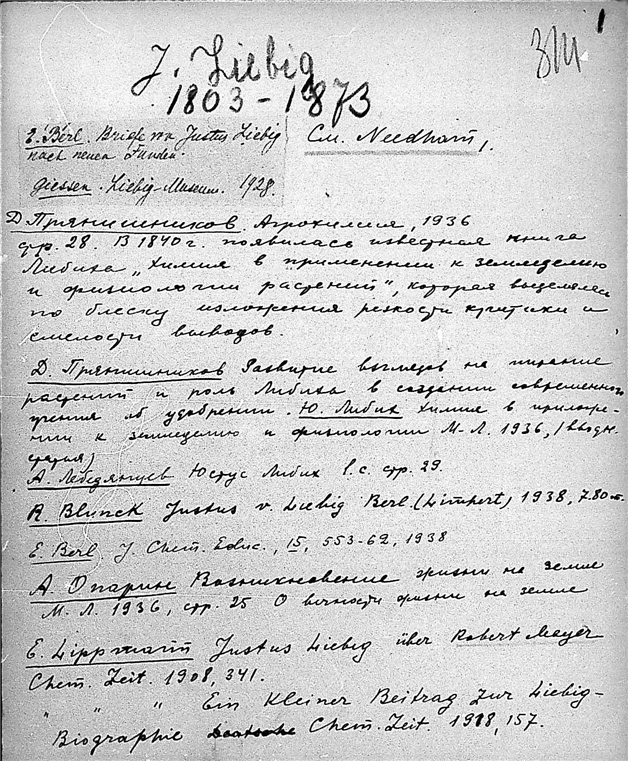 1
J. Liebig
1803 - 1873
E. Berl. Briefe von Justus Liebig
nach neuen Funden.
Giessen. Liebig-Museum. 1928.
См. Needham,
Д. Прянишников. Агрохимия, 1936
стр. 28. В 1840 г. появилась известная книга
Либиха „Химия в применении к земледелию
и физиологии растений", которая выделялась
по блеску изложения резкости критики и
смелости выводов.
Д. Прянишников Развитие взглядов на питание
растений и роль Либиха в создании современного
учения об удобрении. Ю. Либих Химия в приложе-
нии к земледелию и физиологии М.-Л. 1936, (вводн.
статья)
А. Лебедянцев Юстус Либих l.c. стр. 29.
R. Blunck Justus v. Liebig Berl. (Limpert) 1938, 7.80 м.
E. Berl J. Chem. Educ., 15, 553-62, 1938
А. Опарин Возникновение жизни на земле
М. Л. 1936, стр. 25 О вечности жизни на земле
E. Lippmann Justus Liebig über Robert Meyer
Chem. Zeit. 1908, 341.
" " " Ein Kleiner Beitrag zur Liebig-
Biographie Chem. Zeit. 1918, 157.